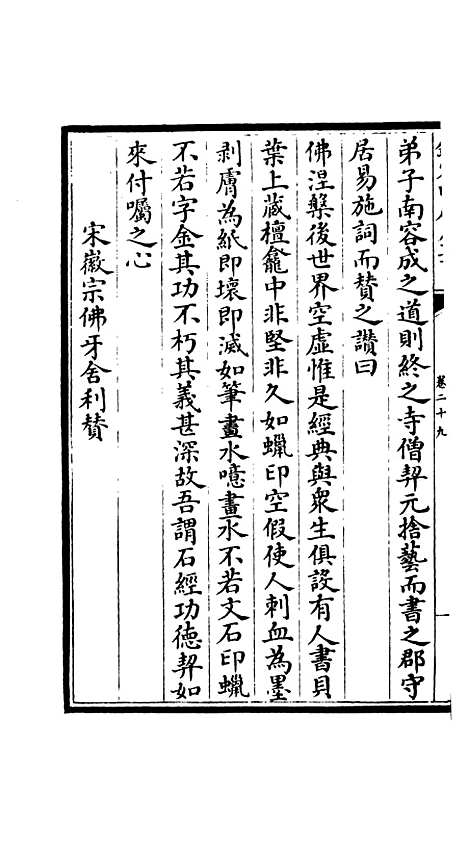 卷二十九
一
弟子南容成之道則終之寺僧契元捨藝而書之郡守
居易施詞而賛之讚曰
佛涅槃後世界空虛惟是經典與衆生俱設有人書貝
葉上藏檀龕中非堅非久如蠟印空假使人刺血為墨
剥膚為紙即壞即滅如筆畫水噫畫水不若文石印蠟
不若字金其功不朽其義甚深故吾謂石經功德契如
來付囑之心
宋徽宗佛牙舍利賛